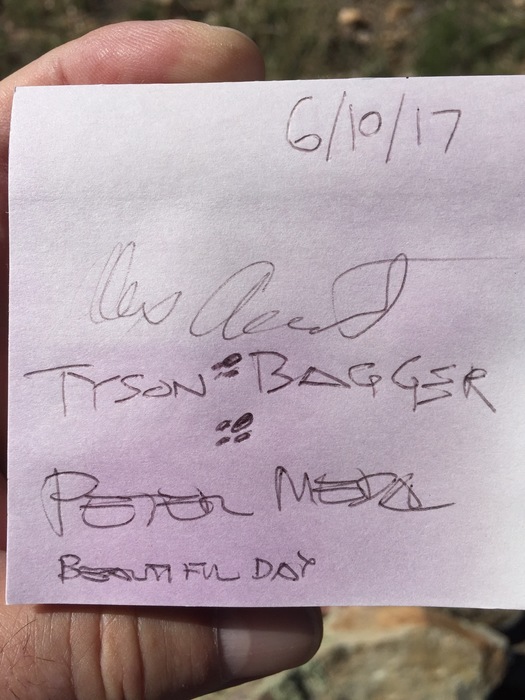 6/10/17
Alex
TYSON BAGGER
PETER
BEAUTIFUL DAY